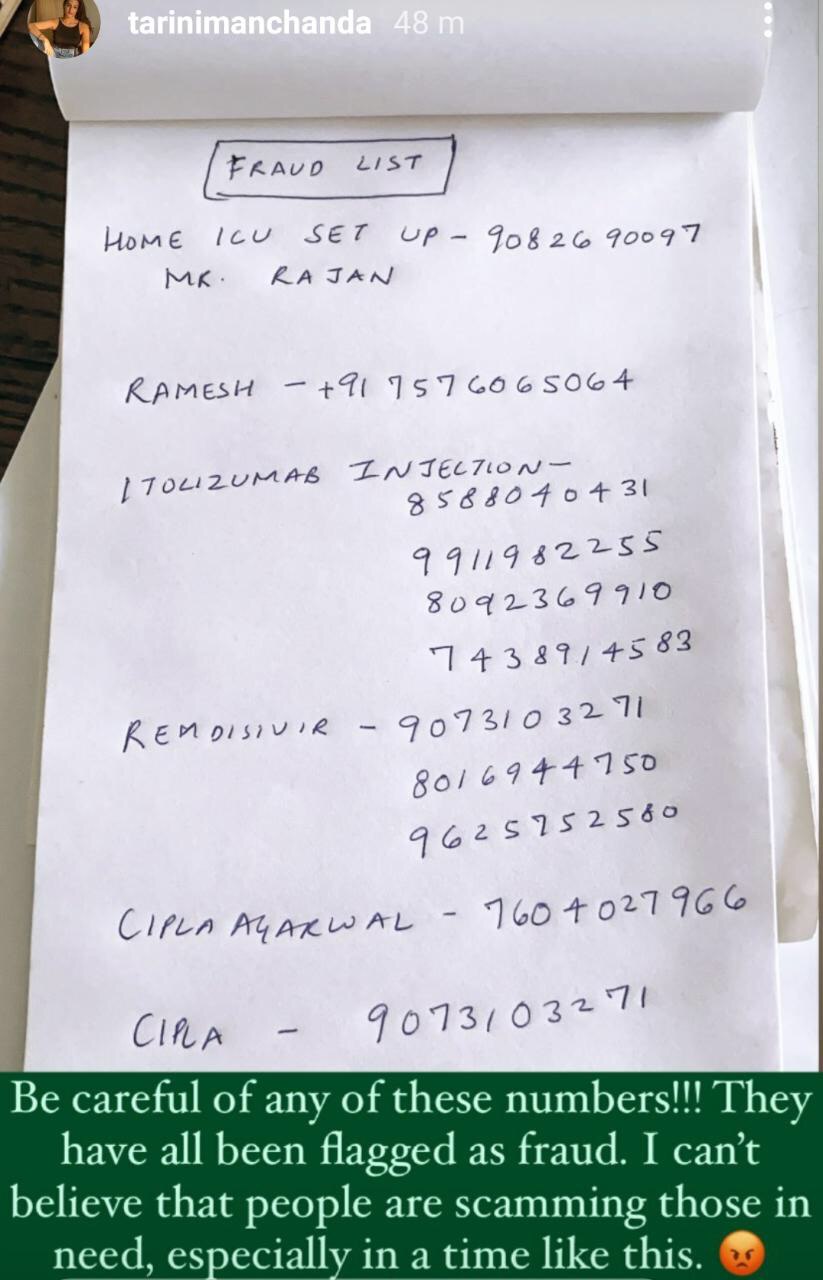 tarinimanchanda 48 m
FRAUD LIST
HOME ICU SET UP - 9082690097
MR. RAJAN
RAMESH - +91 7576065064
ITOLIZUMAB INJECTION -
8588040431
9911982255
8092369910
7438914583
REMDISIVIR - 9073103271
8016944750
9625752580
CIPLA AGARWAL - 7604027966
CIPLA - 9073103271
Be careful of any of these numbers!!! They
have all been flagged as fraud. I can't
believe that people are scamming those in
need, especially in a time like this. 😡